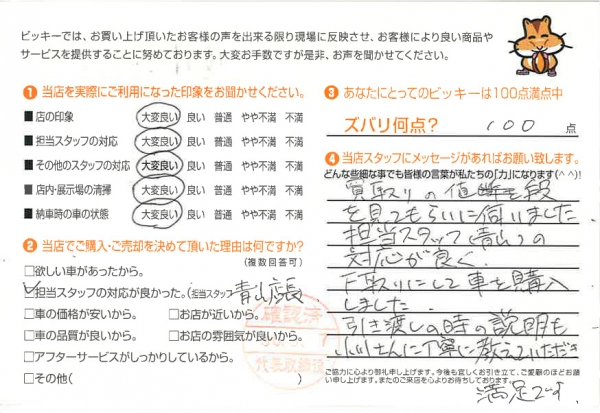 ビッキーでは、お買い上げ頂いたお客様の声を出来る限り現場に反映させ、お客様により良い商品や
サービスを提供することに努めております。大変お手数ですが是非、お声を聞かせてください。
❶ 当店を実際にご利用になった印象をお聞かせください。
■ 店の印象 大変良い 良い 普通 やや不満 不満
■ 担当スタッフの対応 大変良い 良い 普通 やや不満 不満
■ その他のスタッフの対応 大変良い 良い 普通 やや不満 不満
■ 店内・展示場の清掃 大変良い 良い 普通 やや不満 不満
■ 納車時の車の状態 大変良い 良い 普通 やや不満 不満
❷ 当店でご購入・ご売却を決めて頂いた理由は何ですか?
(複数回答可)
□欲しい車があったから。
□担当スタッフの対応が良かった。(担当スタッフ 青山店長
□車の価格が安いから。 □お店が近いから。
□車の品質が良いから。 □お店の雰囲気が良いから。
□アフターサービスがしっかりしているから。
□その他( )
確認済
代表取締役
❸ あなたにとってのビッキーは100点満点中
ズバリ何点? 100 点
❹ 当店スタッフにメッセージがあればお願い致します。
どんな些細な事でも皆様の言葉が私たちの「力」になります(^^)!
買取りの値段を
を見てもらいに伺いました
担当スタッフ(青山)の
対応が良く
下取りにして車を購入
しました
引き渡しの時の説明も
小川さんに丁寧に教えていただき
満足です
ご協力に心より御礼申し上げます。今後も宜しくお引き立て、ご愛顧のほどお願い申し上げます。またのご来店を心よりお待ちしております。